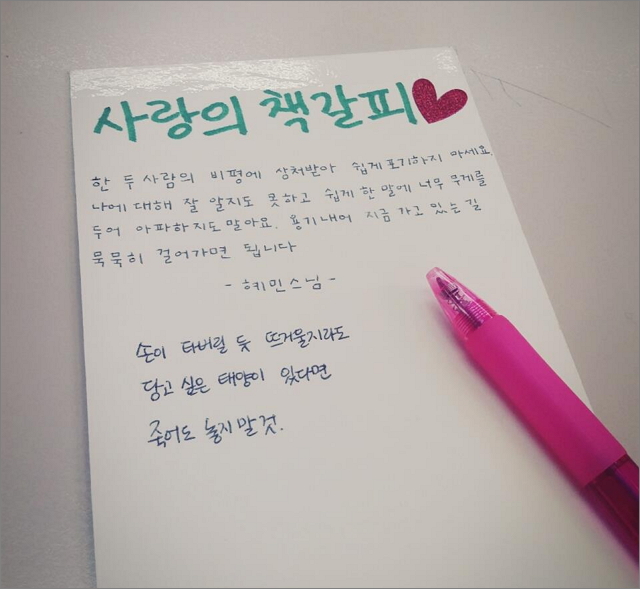 사랑의 책갈피
한 두 사람의 비평에 상처받아 쉽게 포기하지 마세요.
나에 대해 잘 알지도 못하고 쉽게 한 말에 너무 무게를
두어 아파하지도 말아요. 용기내어 지금 가고 있는 길
묵묵히 걸어가면 됩니다
- 혜민스님 -
손이 타버릴 듯 뜨거울지라도
닿고 싶은 태양이 있다면
죽어도 놓지 말 것.